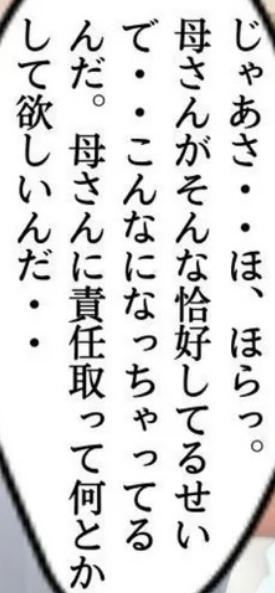 じゃあさ・・ほ、ほらっ。
母さんがそんな恰好してるせい
で・・こんなになっちゃってる
んだ。母さんに責任取って何とか
して欲しいんだ・・